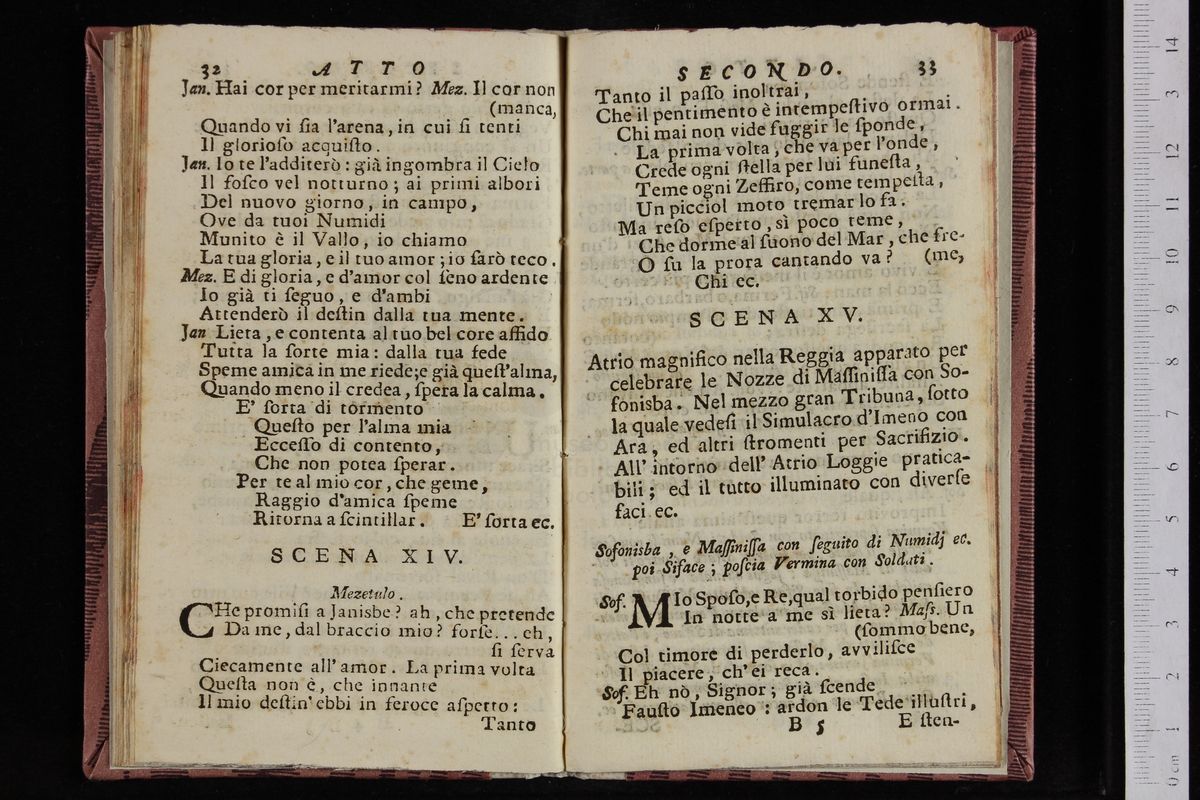 32 ATTO
Jan. Hai cor per meritarmi? Mez. Il cor non
(manca,
Quando vi ſia l'arena, in cui ſi tenti
Il glorioſo acquiſto.
Jan. Io te l'additerò: già ingombra il Cielo
Il foſco vel notturno; ai primi albori
Del nuovo giorno, in campo,
Ove da tuoi Numidi
Munito è il Vallo, io chiamo
La tua gloria, e il tuo amor; io ſarò teco.
Mez. E di gloria, e d'amor col ſeno ardente
Io già ti ſeguo, e d'ambi
Attenderò il deſtin dalla tua mente.
Jan Lieta, e contenta al tuo bel core affido
Tutta la ſorte mia: dalla tua fede
Speme amica in me riede; e già queſt'alma,
Quando meno il credea, ſpera la calma.
E' ſorta di tormento
Queſto per l'alma mia
Ecceſſo di contento,
Che non potea ſperar.
Per te al mio cor, che geme,
Raggio d'amica ſpeme
Ritorna a ſcintillar. E' ſorta ec.
SCENA XIV.
Mezetulo.
CHe promiſi a Janisbe? ah, che pretende
Da me, dal braccio mio? forſe... eh,
ſi ſerva
Ciecamente all'amor. La prima volta
Queſta non è, che innante
Il mio deſtin' ebbi in feroce aſpetto:
Tanto
SECONDO. 33
Tanto il paſſo inoltrai,
Che il pentimento è intempeſtivo ormai.
Chi mai non vide fuggir le ſponde,
La prima volta, che va per l'onde,
Crede ogni ſtella per lui funeſta,
Teme ogni Zeffiro, come tempeſta,
Un picciol moto tremar lo fa.
Ma reſo eſperto, sì poco teme,
Che dorme al ſuono del Mar, che fre-
O ſu la prora cantando va? (me,
Chi ec.
SCENA XV.
Atrio magnifico nella Reggia apparato per
celebrare le Nozze di Maſſiniſſa con So-
fonisba. Nel mezzo gran Tribuna, ſotto
la quale vedeſi il Simulacro d'Imeno con
Ara, ed altri ſtromenti per Sacrifizio.
All' intorno dell' Atrio Loggie pratica-
bili; ed il tutto illuminato con diverſe
faci ec.
Sofonisba, e Maſſiniſſa con ſeguito di Numidj ec.
poi Siface; poſcia Vermina con Soldati.
Sof. MIo Spoſo, e Re, qual torbido penſiero
In notte a me sì lieta? Maſs. Un
(ſommo bene,
Col timore di perderlo, avviliſce
Il piacere, ch' ei reca.
Sof. Eh nò, Signor; già ſcende
Fauſto Imeneo: ardon le Tede illuſtri,
B 5 E ſten-
0 cm 1 2 3 4 5 6 7 8 9 10 11 12 13 14